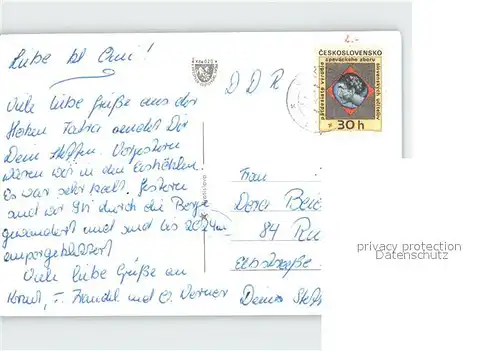 Liebe kl Omi!
Viele liebe Grüße aus der
Hohen Tatra sendet Dir
Dein Steffen. Vorgestern
waren wir in den Eishöhlen.
Es war sehr kalt. Gestern
sind wir 9h durch die Berge
gewandert und sind bis 2024m
emporgeklettert
Viele liebe Grüße an
und O. Werner
Deine Stef
DDR
ČESKOSLOVENSKO
speváckeho zboru
30 h
Frau
Dora
84 Ru
privacy protection
Datenschutz